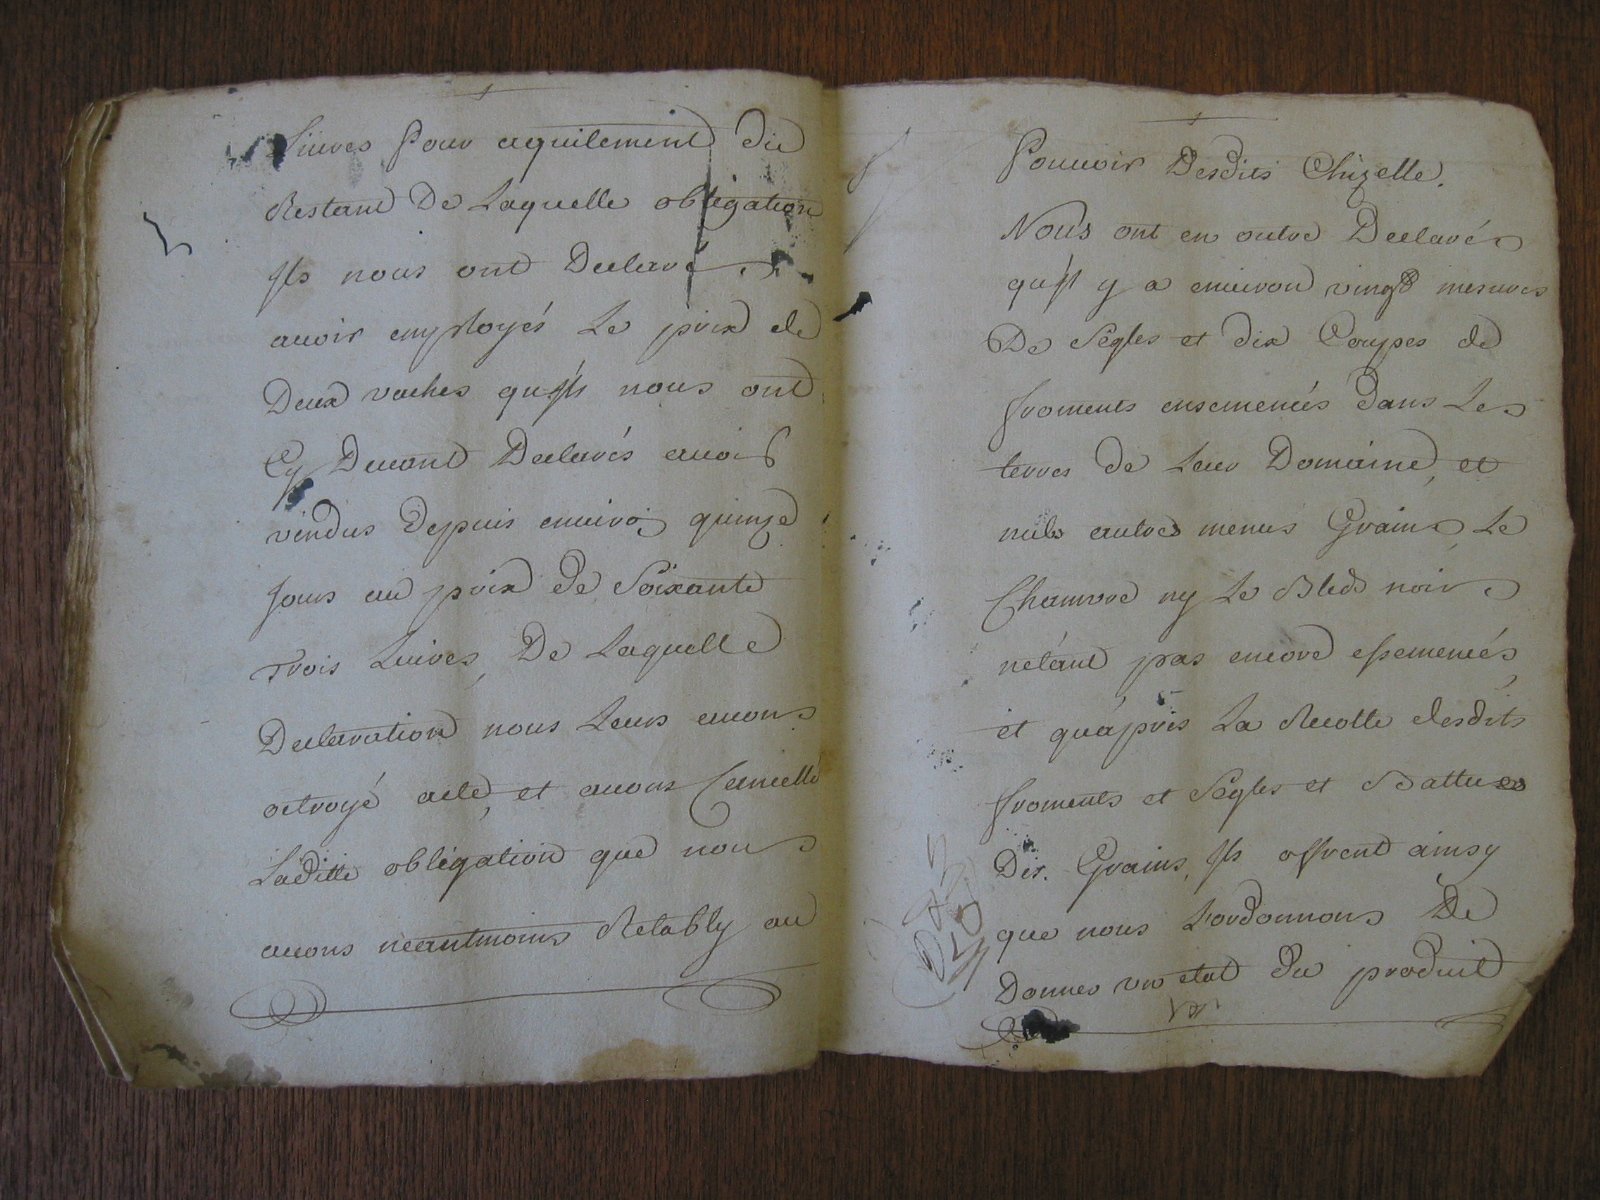 Livres Pour aquitement du
Restant De Laquelle obligation
Ils nous ont Declaré
avoir employés Le prix de
Deux vaches qu'ils nous ont
Cy Devant Declarés avoir
vendus Depuis environ quinze
Jours au prix de Soixante
Trois Livres, De Laquelle
Declaration nous Leurs avons
octroyé acte, et avons Cancellé
Laditte obligation que nous
avons néantmoins Retably au
Pouvoir Desdits Chizelle.
Nous ont en outre Declarés
qu'il y a environ vingt mesures
De Segles et dix Coupes de
froments ensemencés dans Les
terres de Leur Domaine, et
nuls autres menus Grains, Le
Chanvre ny Le Bled noir
n'étant pas encore essemencés,
et qu'aprés La Recolte desdits
froments et Segles et Battues
Des. Grains, Ils offrent ainsy
que nous L'ordonnons De
Donner un état du produit